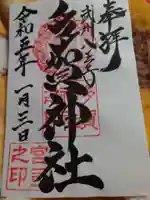 奉拝
武州八王子
多賀神社
令和五年
一月三日
宮司之印